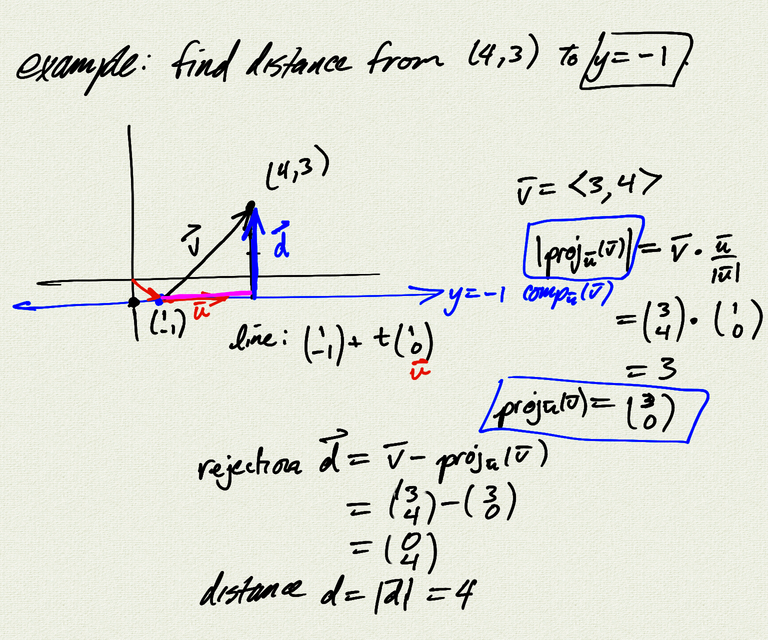 example: find distance from (4,3) to y = -1.
(4,3)
v⃗
d⃗
(1 -1)
ū
y = -1
line: (1 -1) + t(1 0)
ū
v̄ = <3,4>
|proj_ū(v̄)| = v̄ · ū/|ū|
comp_ū(v̄)
= (3 4) · (1 0)
= 3
proj_ū(v̄) = (3 0)
rejection d⃗ = v̄ - proj_ū(v̄)
= (3 4) - (3 0)
= (0 4)
distance d = |d⃗| = 4